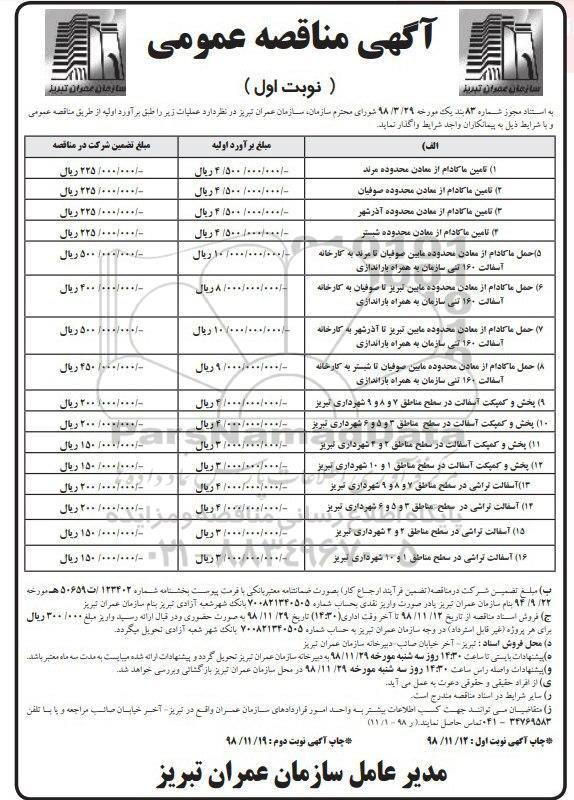 آگهی مناقصه عمومی
( نوبت اول )
سازمان عمران تبریز
سازمان عمران تبریز
به استناد مجوز شماره ۸۳ بند یک مورخه ۹۸/۳/۲۹ شورای محترم سازمان، سازمان عمران تبریز در نظر دارد عملیات زیر را طبق برآورد اولیه از طریق مناقصه عمومی
و با شرایط ذیل به پیمانکاران واجد شرایط واگذار نماید.
الف) مبلغ برآورد اولیه مبلغ تضمین شرکت در مناقصه
۱) تامین ماکادام از معادن محدوده مرند ۴/۵۰۰/۰۰۰/۰۰۰/- ریال ۲۲۵/۰۰۰/۰۰۰/- ریال
۲) تامین ماکادام از معادن محدوده صوفیان ۴/۵۰۰/۰۰۰/۰۰۰/- ریال ۲۲۵/۰۰۰/۰۰۰/- ریال
۳) تامین ماکادام از معادن محدوده آذرشهر ۴/۵۰۰/۰۰۰/۰۰۰/- ریال ۲۲۵/۰۰۰/۰۰۰/- ریال
۴) تامین ماکادام از معادن محدوده شبستر ۴/۵۰۰/۰۰۰/۰۰۰/- ریال ۲۲۵/۰۰۰/۰۰۰/- ریال
۵)حمل ماکادام از معادن محدوده مابین صوفیان تا مرند به کارخانه ۱۰/۰۰۰/۰۰۰/۰۰۰/- ریال ۵۰۰/۰۰۰/۰۰۰/- ریال
آسفالت ۱۶۰ تنی سازمان به همراه باراندازی
۶) حمل ماکادام از معادن محدوده مابین تبریز تا صوفیان به کارخانه ۸/۰۰۰/۰۰۰/۰۰۰/- ریال ۴۰۰/۰۰۰/۰۰۰/- ریال
آسفالت ۱۶۰ تنی سازمان به همراه باراندازی
۷) حمل ماکادام از معادن محدوده مابین تبریز تا آذرشهر به کارخانه ۱۰/۰۰۰/۰۰۰/۰۰۰/- ریال ۵۰۰/۰۰۰/۰۰۰/- ریال
آسفالت ۱۶۰ تنی سازمان به همراه باراندازی
۸) حمل ماکادام از معادن محدوده مابین صوفیان تا شبستر به کارخانه ۹/۰۰۰/۰۰۰/۰۰۰/- ریال ۴۵۰/۰۰۰/۰۰۰/- ریال
آسفالت ۱۶۰ تنی سازمان به همراه باراندازی
۹) پخش و کمپکت آسفالت در سطح مناطق ۷ و ۸ و ۹ شهرداری تبریز ۴/۰۰۰/۰۰۰/۰۰۰/- ریال ۲۰۰/۰۰۰/۰۰۰/- ریال
۱۰) پخش و کمپکت آسفالت در سطح مناطق ۳ و ۵ و ۶ شهرداری تبریز ۴/۰۰۰/۰۰۰/۰۰۰/- ریال ۲۰۰/۰۰۰/۰۰۰/- ریال
۱۱) پخش و کمپکت آسفالت در سطح مناطق ۲ و ۴ شهرداری تبریز ۳/۰۰۰/۰۰۰/۰۰۰/- ریال ۱۵۰/۰۰۰/۰۰۰/- ریال
۱۲) پخش و کمپکت آسفالت در سطح مناطق ۱ و ۱۰ شهرداری تبریز ۳/۰۰۰/۰۰۰/۰۰۰/- ریال ۱۵۰/۰۰۰/۰۰۰/- ریال
۱۳)آسفالت تراشی در سطح مناطق ۷ و ۸ و ۹ شهرداری تبریز ۴/۰۰۰/۰۰۰/۰۰۰/- ریال ۲۰۰/۰۰۰/۰۰۰/- ریال
۱۴) آسفالت تراشی در سطح مناطق ۳ و ۵ و ۶ شهرداری تبریز ۴/۰۰۰/۰۰۰/۰۰۰/- ریال ۲۰۰/۰۰۰/۰۰۰/- ریال
۱۵) آسفالت تراشی در سطح مناطق ۲ و ۴ شهرداری تبریز ۳/۰۰۰/۰۰۰/۰۰۰/- ریال ۱۵۰/۰۰۰/۰۰۰/- ریال
۱۶) آسفالت تراشی در سطح مناطق ۱ و ۱۰ شهرداری تبریز ۳/۰۰۰/۰۰۰/۰۰۰/- ریال ۱۵۰/۰۰۰/۰۰۰/- ریال
ب) مبلغ تضمین شرکت در مناقصه(تضمین فرآیند ارجاع کار) بصورت ضمانتنامه معتبر بانکی با فرمت پیوست بخشنامه شماره ۱۲۳۴۰۲/ت۵۰۶۵۹ هـ مورخه
۹۴/۹/۲۲ بنام سازمان عمران تبریز یا در صورت واریز نقدی بحساب شماره ۷۰۰۸۲۱۳۴۰۵۰۵ بانک شهر شعبه آزادی تبریز بنام سازمان عمران تبریز
ج) فروش اسناد مناقصه از تاریخ ۹۸/۱۱/۱۲ تا آخر وقت اداری(۱۴:۳۰) تاریخ ۹۸/۱۱/۲۹ به صورت حضوری و در قبال ارائه رسید واریز مبلغ ۳۰۰/۰۰۰ ریال
برای هر پروژه (غیر قابل استرداد) در وجه سازمان عمران تبریز به حساب شماره ۷۰۰۸۲۱۳۴۰۵۰۵ بانک شهر شعبه آزادی تحویل میگردد.
د) محل فروش اسناد : تبریز- آخر خیابان صائب- دبیرخانه سازمان عمران تبریز
ه)پیشنهادات بایستی تا ساعت ۱۴:۳۰ روز سه شنبه مورخه ۹۸/۱۱/۲۹ به دبیرخانه سازمان عمران تبریز تحویل گردد و پیشنهادات ارائه شده میبایست به مدت سه ماه معتبر باشد.
و)پیشنهادات واصله راس ساعت ۱۴:۳۰ روز سه شنبه مورخه ۹۸/۱۱/۲۹ در محل سازمان عمران تبریز بازگشائی و بررسی خواهد شد.
ی) از افراد حقیقی و حقوقی دعوت به عمل می آید.
ر) سایر شرایط در اسناد مناقصه مندرج است.
ز) متقاضیان می توانند جهت کسب اطلاعات بیشتر به واحد امور قراردادهای سازمان عمران واقع در تبریز- آخر خیابان صائب مراجعه و یا با تلفن
۳۴۷۶۹۵۸۳ -۰۴۱ تماس حاصل نمایند.( ر ۹۸ - ۱۱/۱)
*چاپ آگهی نوبت اول : ۹۸/۱۱/۱۲ *چاپ آگهی نوبت دوم : ۹۸/۱۱/۱۹
مدیر عامل سازمان عمران تبریز
ParsNamad
پایگاه اطلاع رسانی مناقصه و مزایده